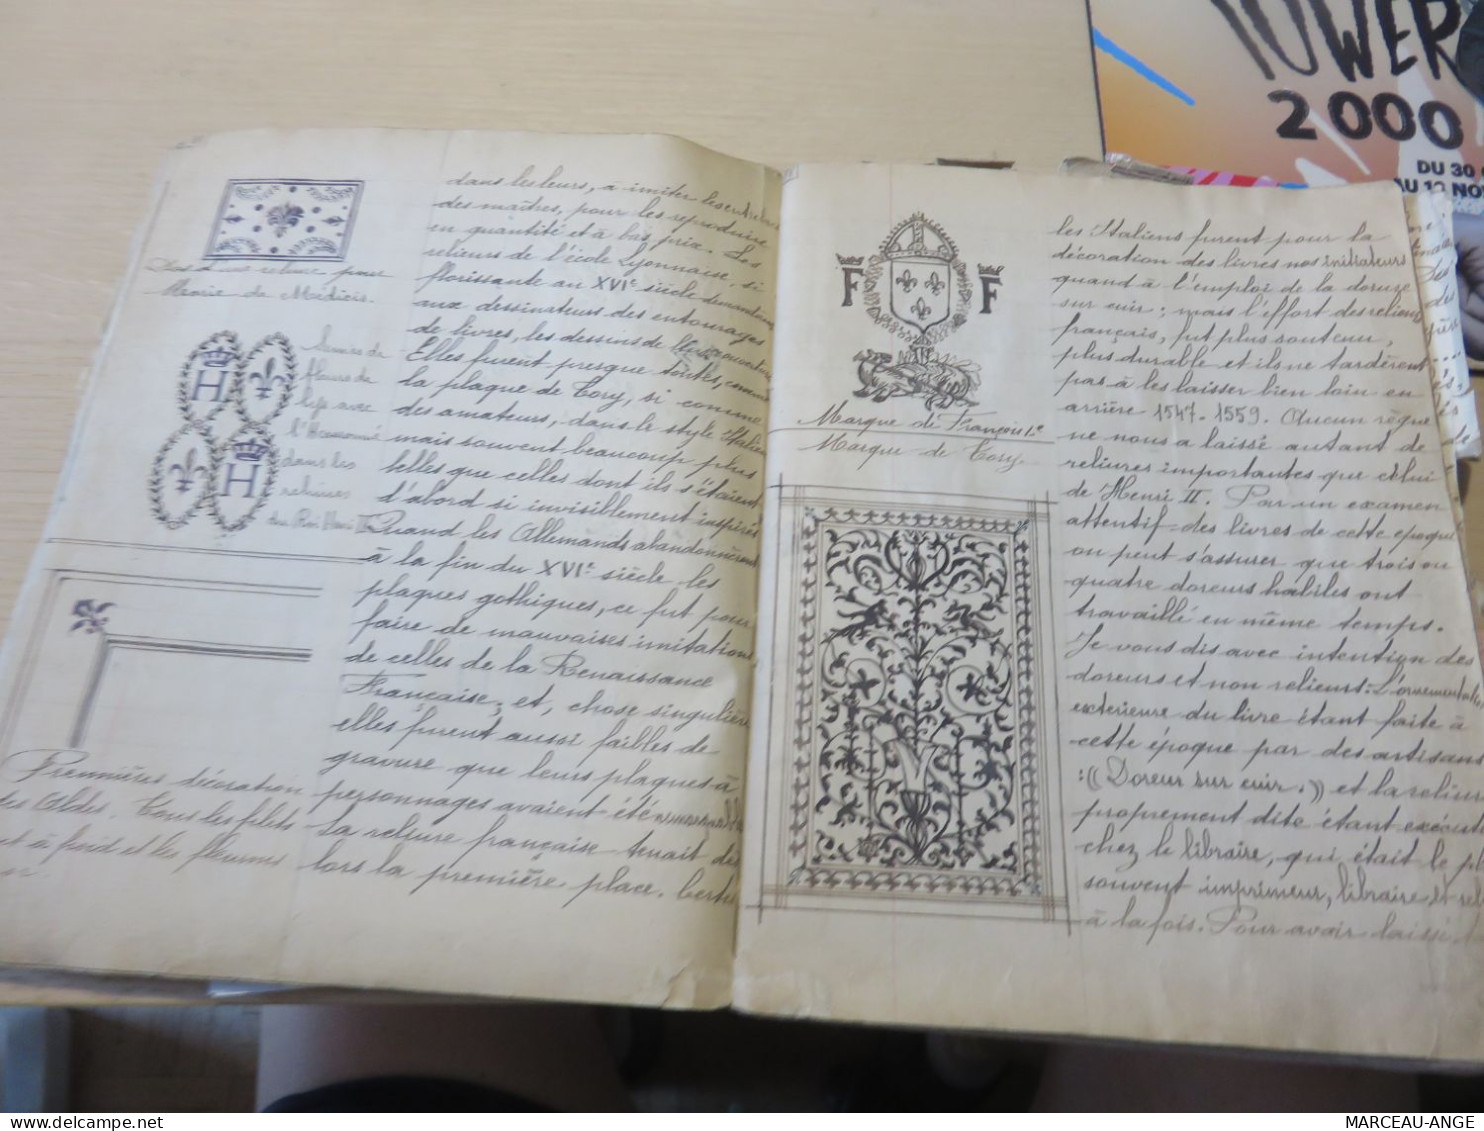 dans les leurs, à imiter les
des maîtres, pour les reproduire
en quantité et à bas prix. Les
relieurs de l'école Lyonnaise, si
florissante au XVIe siècle
aux dessinateurs des entourages
de livres, les dessins de
Elles furent presque toutes, comme
la plaque de Tory, si comme
des amateurs, dans le style Italien
mais souvent beaucoup plus
telles que celles dont ils s'étaient
d'abord si invisiblement inspirés
Quand les Allemands abandonnèrent
à la fin du XVIe siècle les
plaques gothiques, ce fut pour
faire de mauvaises imitations
de celles de la Renaissance
Française, et, chose singulière
elles furent aussi faibles de
gravure que leurs plaques à
personnages avaient été
La reliure française tenait dès
lors la première place. Certes
une reliure pour
Marie de Médicis.
H
fleurs de
lys avec
dans les
reliures
du Roi Henri II
H
Premières décoration
des Aldes. Tous les filets
à froid et les fleurons
F F
Marque de François 1er
Marque de Tory.
les Italiens furent pour la
décoration des livres nos initiateurs
quand à l'emploi de la dorure
sur cuir; mais l'effort des relieurs
français, fut plus soutenu,
plus durable et ils ne tardèrent
pas à les laisser bien loin en
arrière 1547-1559. Aucun règne
ne nous a laissé autant de
reliures importantes que celui
de Henri II. Par un examen
attentif des livres de cette époque
on peut s'assurer que trois ou
quatre doreurs habiles ont
travaillé en même temps.
Je vous dis avec intention des
doreurs et non relieurs: L'ornementation
extérieure du livre étant faite à
cette époque par des artisans
:((Doreur sur cuir.)) et la reliure
proprement dite étant exécutée
chez le libraire, qui était le plus
souvent imprimeur, libraire et
à la fois. Pour avoir laissé
POWER
2000
DU 30
AU 1
NOV
MARCEAU-ANGE